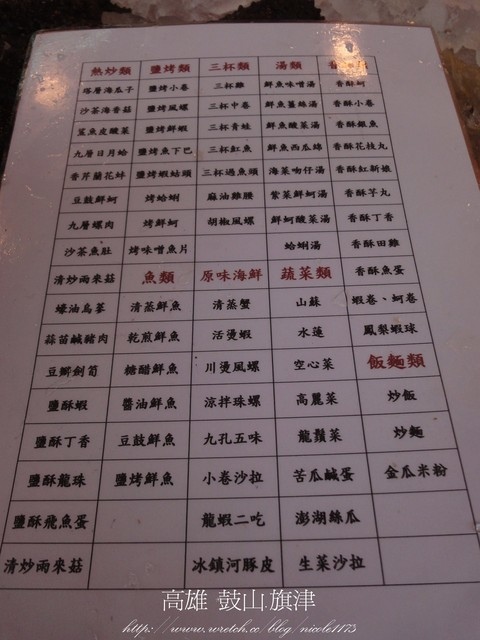 熱炒類 鹽烤類 三杯類 湯類
塔層海瓜子 鹽烤小卷 三杯雞 鮮魚味噌湯 香酥蚵
沙茶海香菇 鹽烤風螺 三杯中卷 鮮魚薑絲湯 香酥小卷
鯊魚皮酸菜 鹽烤鮮蝦 三杯青蛙 鮮魚酸菜湯 香酥銀魚
九層日月蛤 鹽烤魚下巴 三杯魟魚 鮮魚西瓜綿 香酥花枝丸
香芹蘭花蚌 鹽烤蝦蛄頭 三杯過魚頭 海菜吻仔湯 香酥紅新娘
豆鼓鮮蚵 烤蛤蜊 麻油雞腰 紫菜鮮蚵湯 香酥芋丸
九層螺肉 烤鮮蚵 胡椒風螺 鮮蚵酸菜湯 香酥丁香
沙茶魚肚 烤味噌魚片 蛤蜊湯 香酥田雞
清炒雨來菇 魚類 原味海鮮 蔬菜類 香酥魚蛋
蠔油烏蔘 清蒸鮮魚 清蒸蟹 山蘇 蝦卷、蚵卷
蒜苗鹹豬肉 乾煎鮮魚 活燙蝦 水蓮 鳳梨蝦球
豆瓣劍筍 糖醋鮮魚 川燙風螺 空心菜 飯麵類
鹽酥蝦 醬油鮮魚 涼拌珠螺 高麗菜 炒飯
鹽酥丁香 豆鼓鮮魚 九孔五味 龍鬚菜 炒麵
鹽酥龍珠 鹽烤鮮魚 小卷沙拉 苦瓜鹹蛋 金瓜米粉
鹽酥飛魚蛋 龍蝦二吃 澎湖絲瓜
清炒雨來菇 冰鎮河豚皮 生菜沙拉
高雄 鼓山.旗津
http://www.wretch.cc/blog/nicole1173